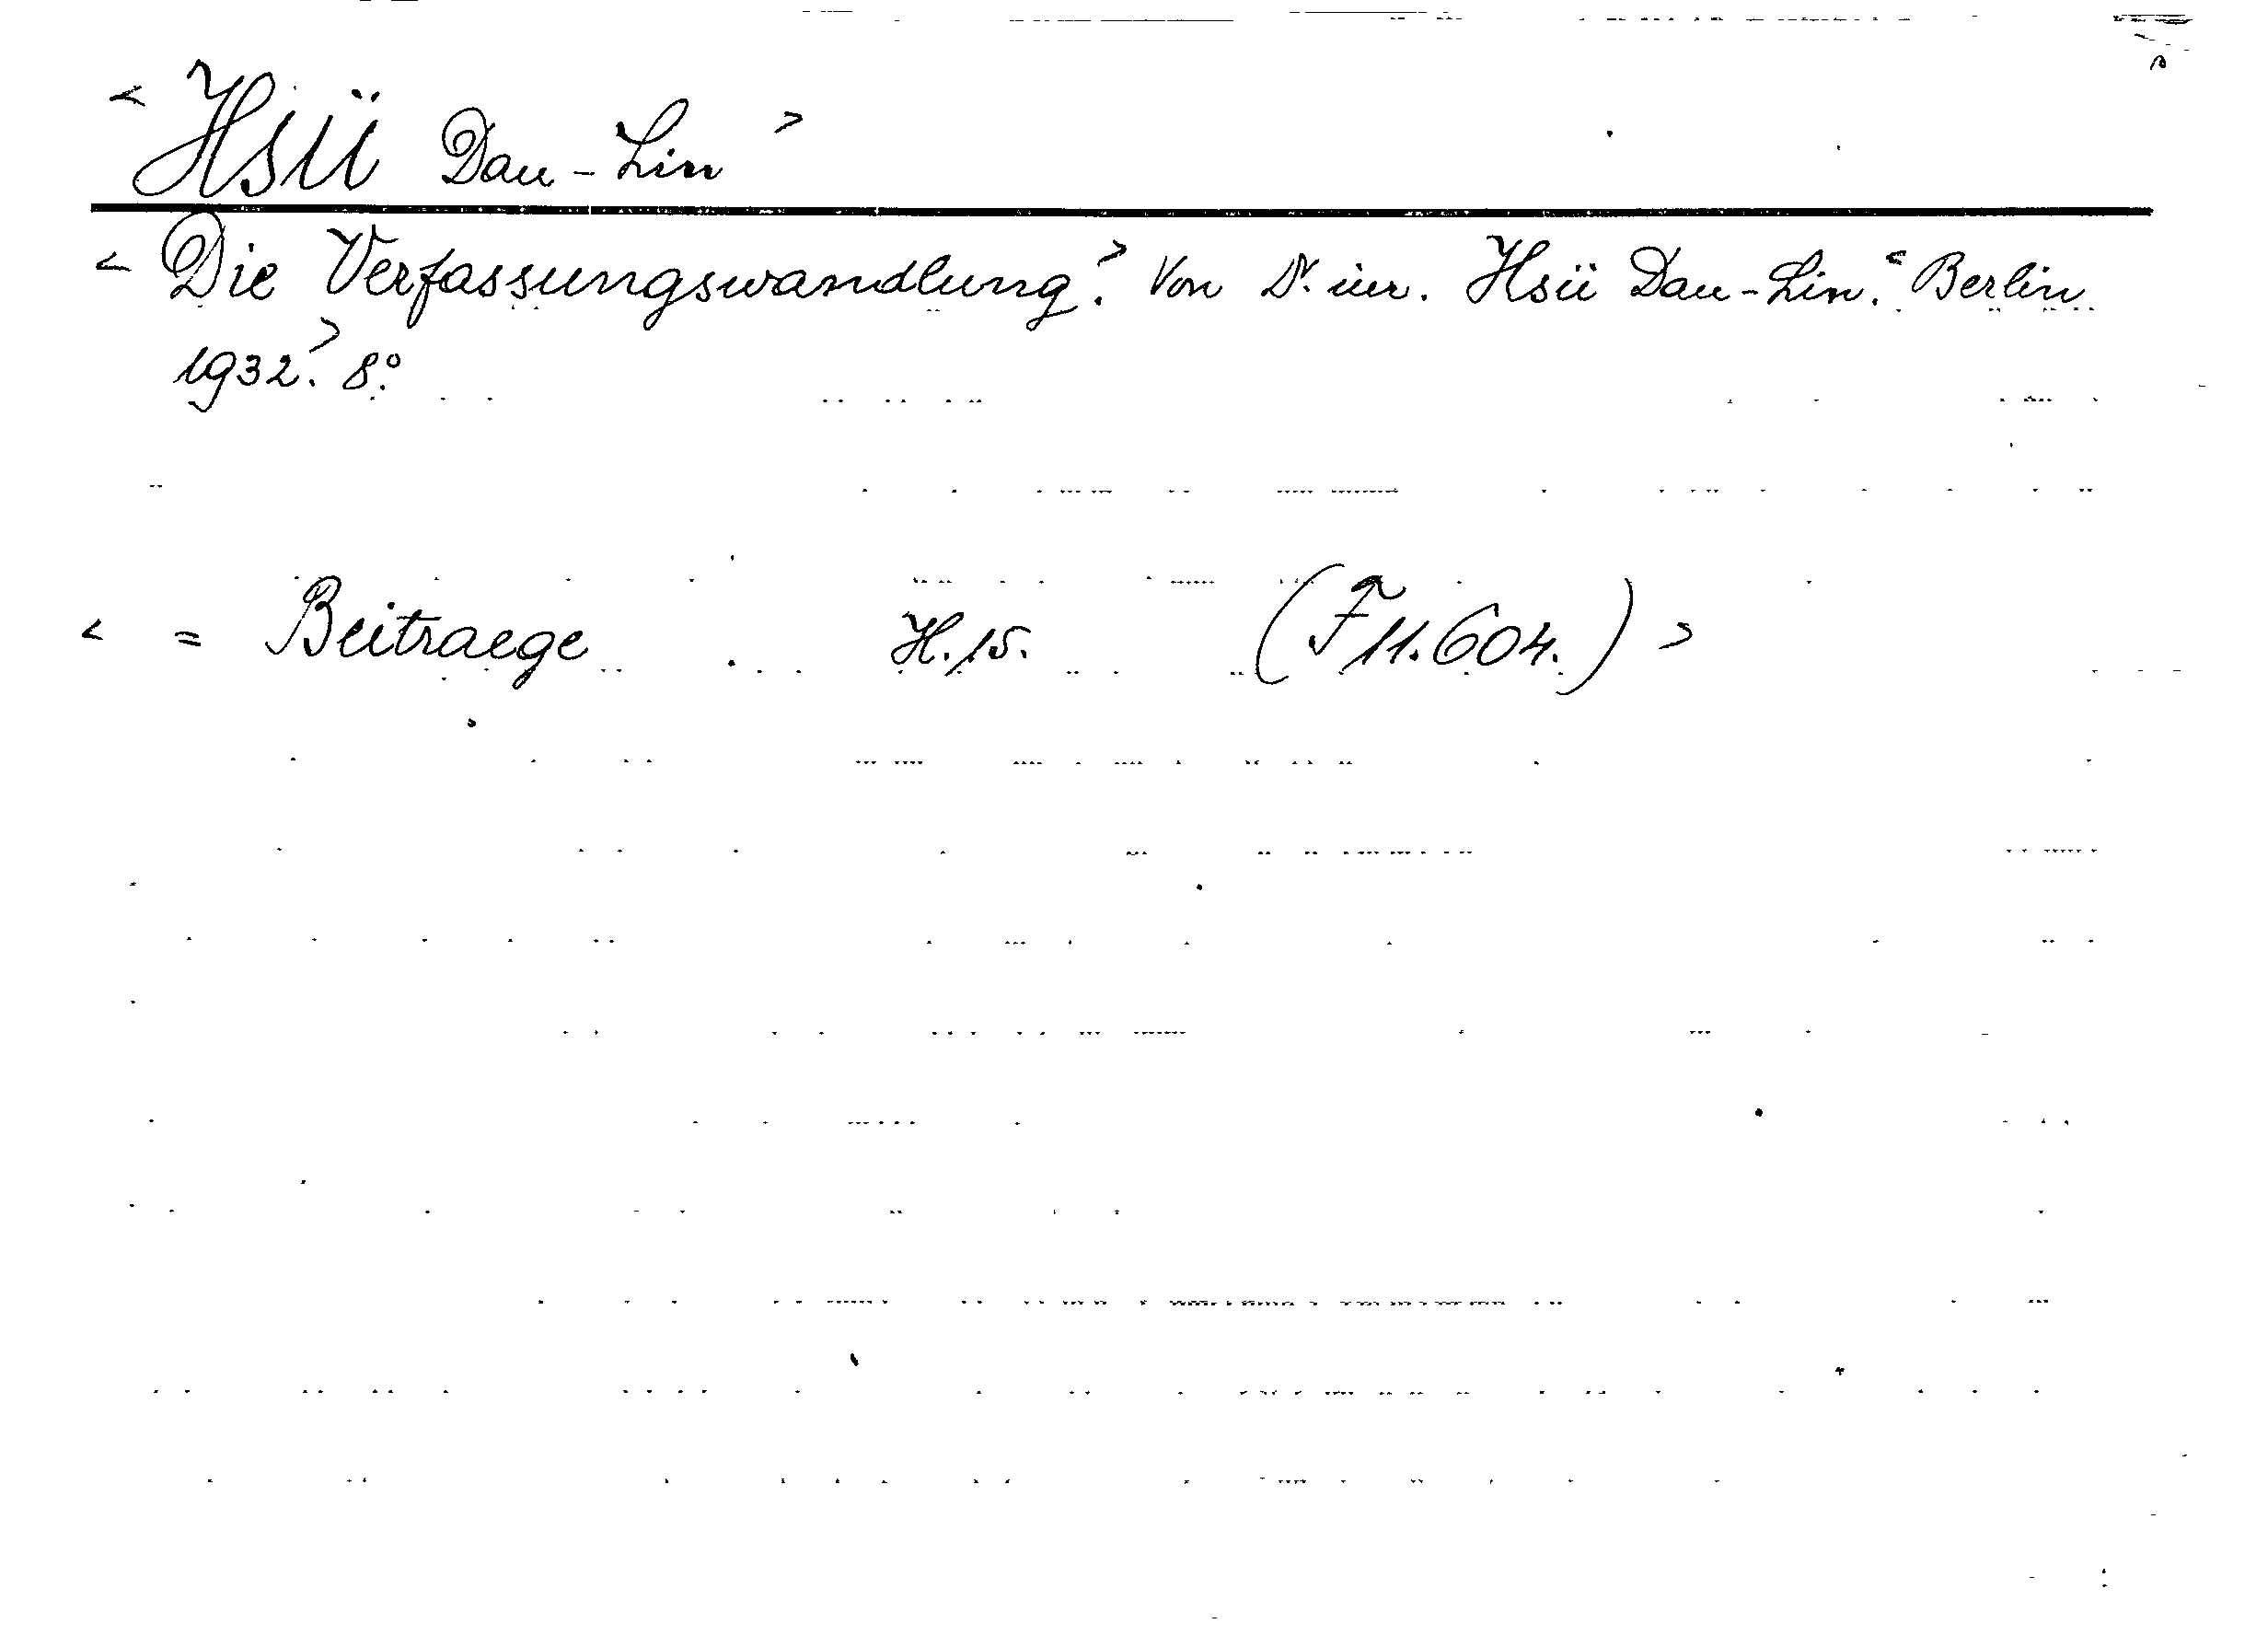 < Hsü Dau-Lin >
< Die Verfassungswandlung.> Von Dr. iur. Hsü Dau-Lin.< Berlin
1932.> 8.°
< = Beitraege H. 15. (F 11.604.) >